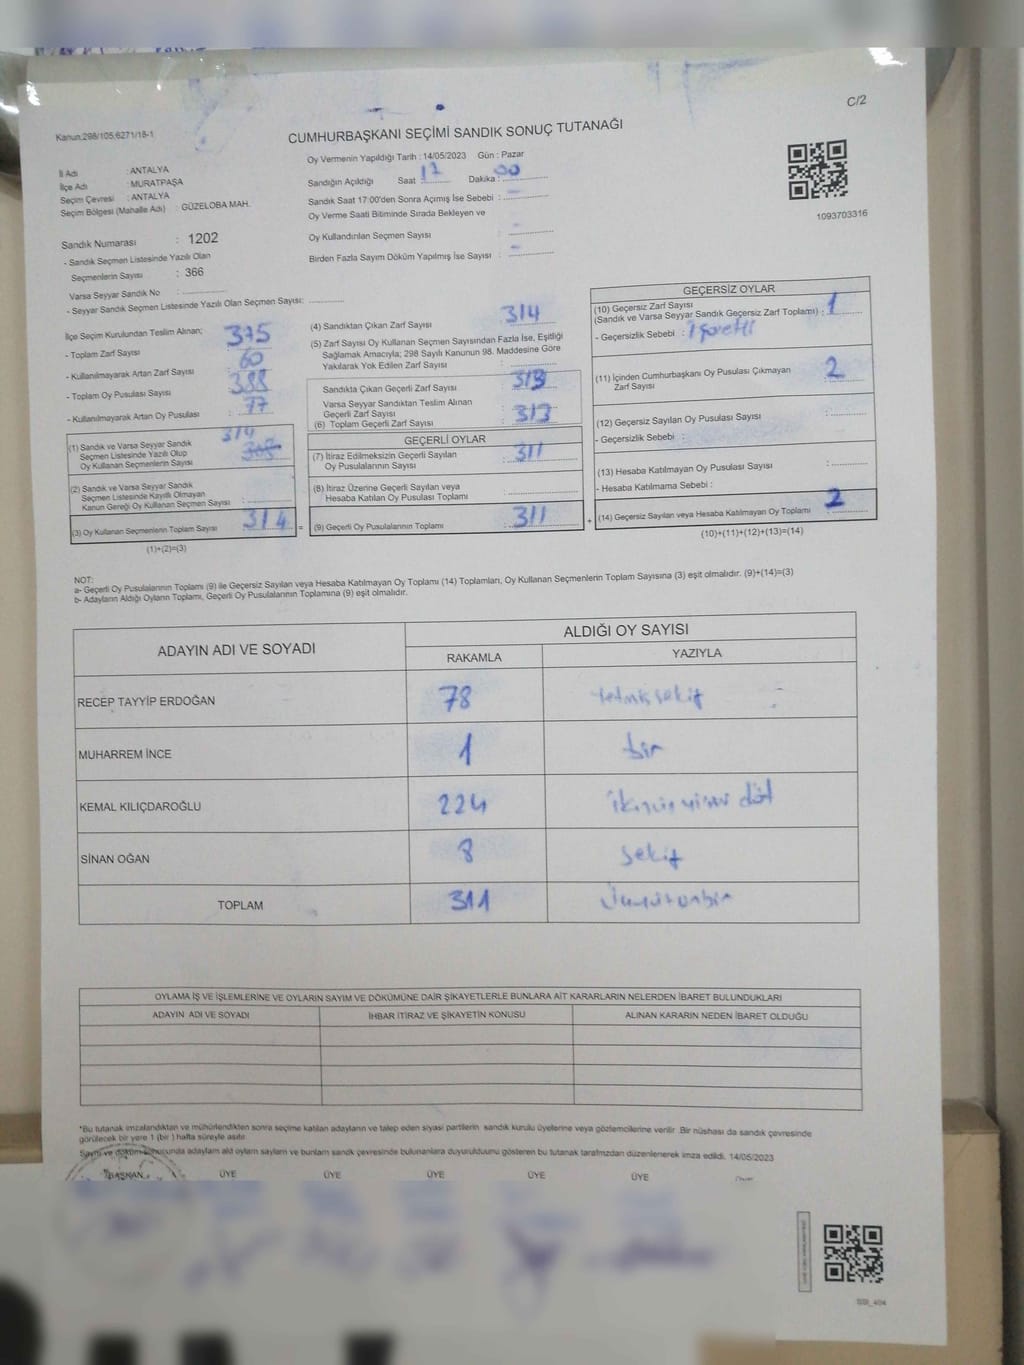 C/2
Kanun:298/105,6271/18-1
CUMHURBAŞKANI SEÇİMİ SANDIK SONUÇ TUTANAĞI
İl Adı : ANTALYA
İlçe Adı : MURATPAŞA
Seçim Çevresi : ANTALYA
Seçim Bölgesi (Mahalle Adı) : GÜZELOBA MAH.
Sandık Numarası : 1202
- Sandık Seçmen Listesinde Yazılı Olan
Seçmenlerin Sayısı : 366
Varsa Seyyar Sandık No :
- Seyyar Sandık Seçmen Listesinde Yazılı Olan Seçmen Sayısı:
Oy Vermenin Yapıldığı Tarih : 14/05/2023 Gün : Pazar
Sandığın Açıldığı Saat : 17 Dakika : 00
Sandık Saat 17:00'den Sonra Açımış İse Sebebi : -
Oy Verme Saati Bitiminde Sırada Bekleyen ve
Oy Kullandırılan Seçmen Sayısı : -
Birden Fazla Sayım Döküm Yapılmış İse Sayısı : -
1093703316
İlçe Seçim Kurulundan Teslim Alınan;
- Toplam Zarf Sayısı : 375
- Kullanılmayarak Artan Zarf Sayısı : 60
- Toplam Oy Pusulası Sayısı : 388
- Kullanılmayarak Artan Oy Pusulası : 77
(1) Sandık ve Varsa Seyyar Sandık
Seçmen Listesinde Yazılı Olup
Oy Kullanan Seçmenlerin Sayısı : 314
(2) Sandık ve Varsa Seyyar Sandık
Seçmen Listesinde Kayıtlı Olmayan
Kanun Gereği Oy Kullanan Seçmen Sayısı :
(3) Oy Kullanan Seçmenlerin Toplam Sayısı : 314 =
(1)+(2)=(3)
(4) Sandıktan Çıkan Zarf Sayısı : 314
(5) Zarf Sayısı Oy Kullanan Seçmen Sayısından Fazla İse, Eşitliği
Sağlamak Amacıyla; 298 Sayılı Kanunun 98. Maddesine Göre
Yakılarak Yok Edilen Zarf Sayısı :
Sandıkta Çıkan Geçerli Zarf Sayısı : 313
Varsa Seyyar Sandıktan Teslim Alınan
Geçerli Zarf Sayısı :
(6) Toplam Geçerli Zarf Sayısı : 313
GEÇERLİ OYLAR
(7) İtiraz Edilmeksizin Geçerli Sayılan
Oy Pusulalarının Sayısı : 311
(8) İtiraz Üzerine Geçerli Sayılan veya
Hesaba Katılan Oy Pusulası Toplamı :
(9) Geçerli Oy Pusulalarının Toplamı : 311 +
GEÇERSİZ OYLAR
(10) Geçersiz Zarf Sayısı
(Sandık ve Varsa Seyyar Sandık Geçersiz Zarf Toplamı) : 1
- Geçersizlik Sebebi : işaretli
(11) İçinden Cumhurbaşkanı Oy Pusulası Çıkmayan
Zarf Sayısı : 2
(12) Geçersiz Sayılan Oy Pusulası Sayısı :
- Geçersizlik Sebebi :
(13) Hesaba Katılmayan Oy Pusulası Sayısı :
- Hesaba Katılmama Sebebi :
(14) Geçersiz Sayılan veya Hesaba Katılmayan Oy Toplamı : 2
(10)+(11)+(12)+(13)=(14)
NOT:
a- Geçerli Oy Pusulalarının Toplamı (9) ile Geçersiz Sayılan veya Hesaba Katılmayan Oy Toplamı (14) Toplamları, Oy Kullanan Seçmenlerin Toplam Sayısına (3) eşit olmalıdır. (9)+(14)=(3)
b- Adayların Aldığı Oyların Toplamı, Geçerli Oy Pusulalarının Toplamına (9) eşit olmalıdır.
ADAYIN ADI VE SOYADI ALDIĞI OY SAYISI
RAKAMLA YAZIYLA
RECEP TAYYİP ERDOĞAN 78 yetmiş sekiz
MUHARREM İNCE 1 bir
KEMAL KILIÇDAROĞLU 224 ikiyüz yirmi dört
SİNAN OĞAN 8 sekiz
TOPLAM 311 Üçyüzonbir
OYLAMA İŞ VE İŞLEMLERİNE VE OYLARIN SAYIM VE DÖKÜMÜNE DAİR ŞİKAYETLERLE BUNLARA AİT KARARLARIN NELERDEN İBARET BULUNDUKLARI
ADAYIN ADI VE SOYADI İHBAR İTİRAZ VE ŞİKAYETİN KONUSU ALINAN KARARIN NEDEN İBARET OLDUĞU
*Bu tutanak imzalandıktan ve mühürlendikten sonra seçime katılan adayların ve talep eden siyasi partilerin sandık kurulu üyelerine veya gözlemcilerine verilir .Bir nüshası da sandık çevresinde
görülecek bir yere 1 (bir ) hafta süreyle asılır.
14/05/2023
BAŞKAN ÜYE ÜYE ÜYE ÜYE ÜYE